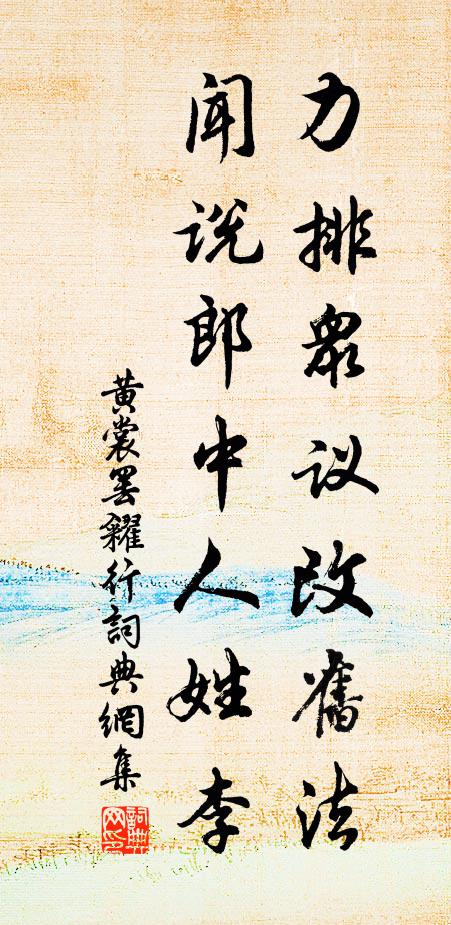 力排眾议改舊法
闻说郎中人姓李
黄裳罢糴行詞典網集
詞典网印